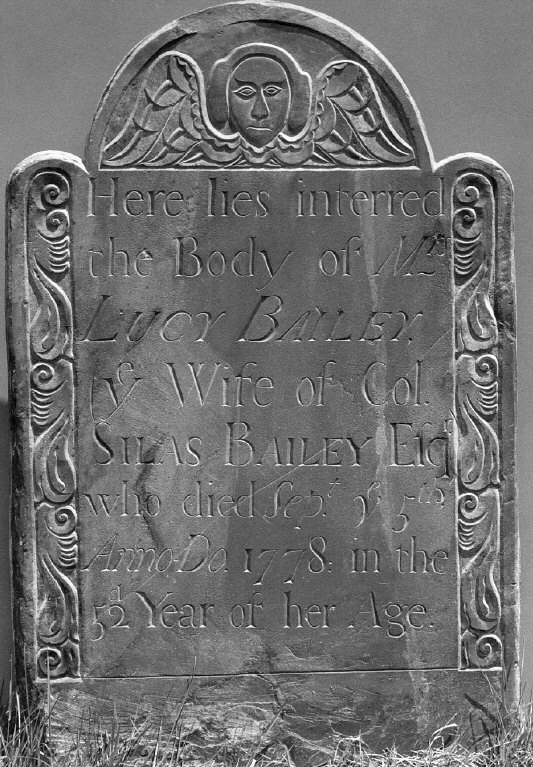 Here lies interred
the Body of Mʳˢ
LUCY BAILEY.
(yᵉ Wife of Col.
SILAS BAILEY Eſqʳ
who died Sepᵗ. yᵉ 5ᵗʰ
Anno-Do. 1778. in the
52ᵈ Year of her Age.